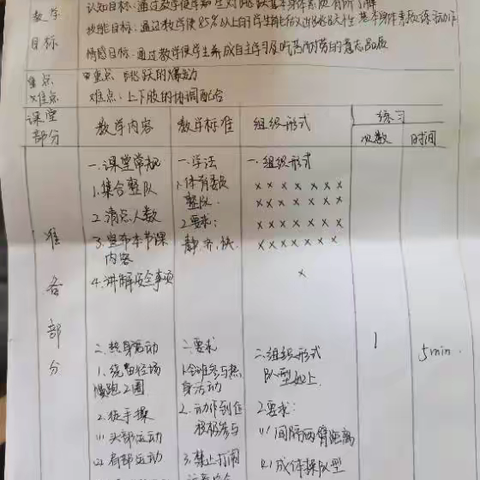 教学目标
认知目标:通过教学使学生对跳跃基本身体素质有所了解
技能目标:通过教学使85%以上的学生
情感目标:通过教学使学生养成自主学习及吃苦耐劳的意志品质
重点 重点 跳跃的爆发
难点 难点:上下肢的协调配合
课堂部分 教学内容 教学标准 组织形式 练习
次数 时间
准备部分
一.课堂常规
1.集合整队
2.清点人数
3.宣布本节课
内容
4.讲解安全事项
二.热身活动
1.绕操场
慢跑2圈
2.徒手操
(1)头部运动
(2)肩部运动
一.学法
1.体育委员
整队.
2.要求:
静.齐.快.
二.要求
1.全体参与热
身活动
2.动作到位
积极参与
3.禁止打闹
一.组织形式
× × × × × × ×
× × × × × × ×
× × × × × × ×
× × × × × × ×
×
二.组织形式
队型如上.
2.要求:
(1)间隔两臂距离
(2)成体操队型
1
5min.